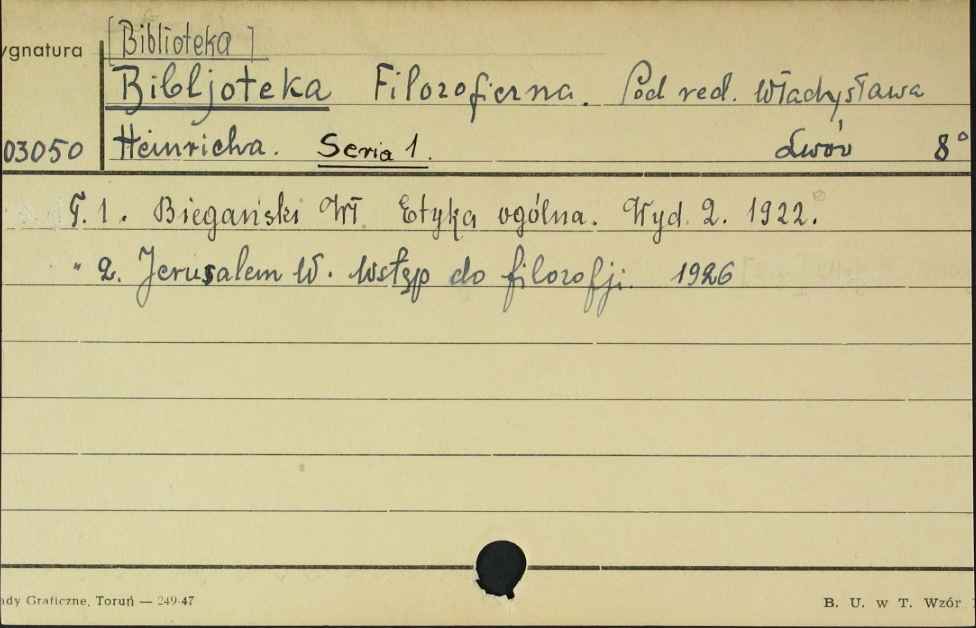 ygnatura [Biblioteka]
Bibljoteka Filozoficzna. Pod red. Władysława
03050 Heinricha. Seria 1. Lwów 8°
T. 1. Biegański Wł. Etyka ogólna. Wyd. 2. 1922.
" 2. Jerusalem W. Wstęp do filozofji. 1926
ady Graficzne, Toruń — 249-47 B. U. w T. Wzór